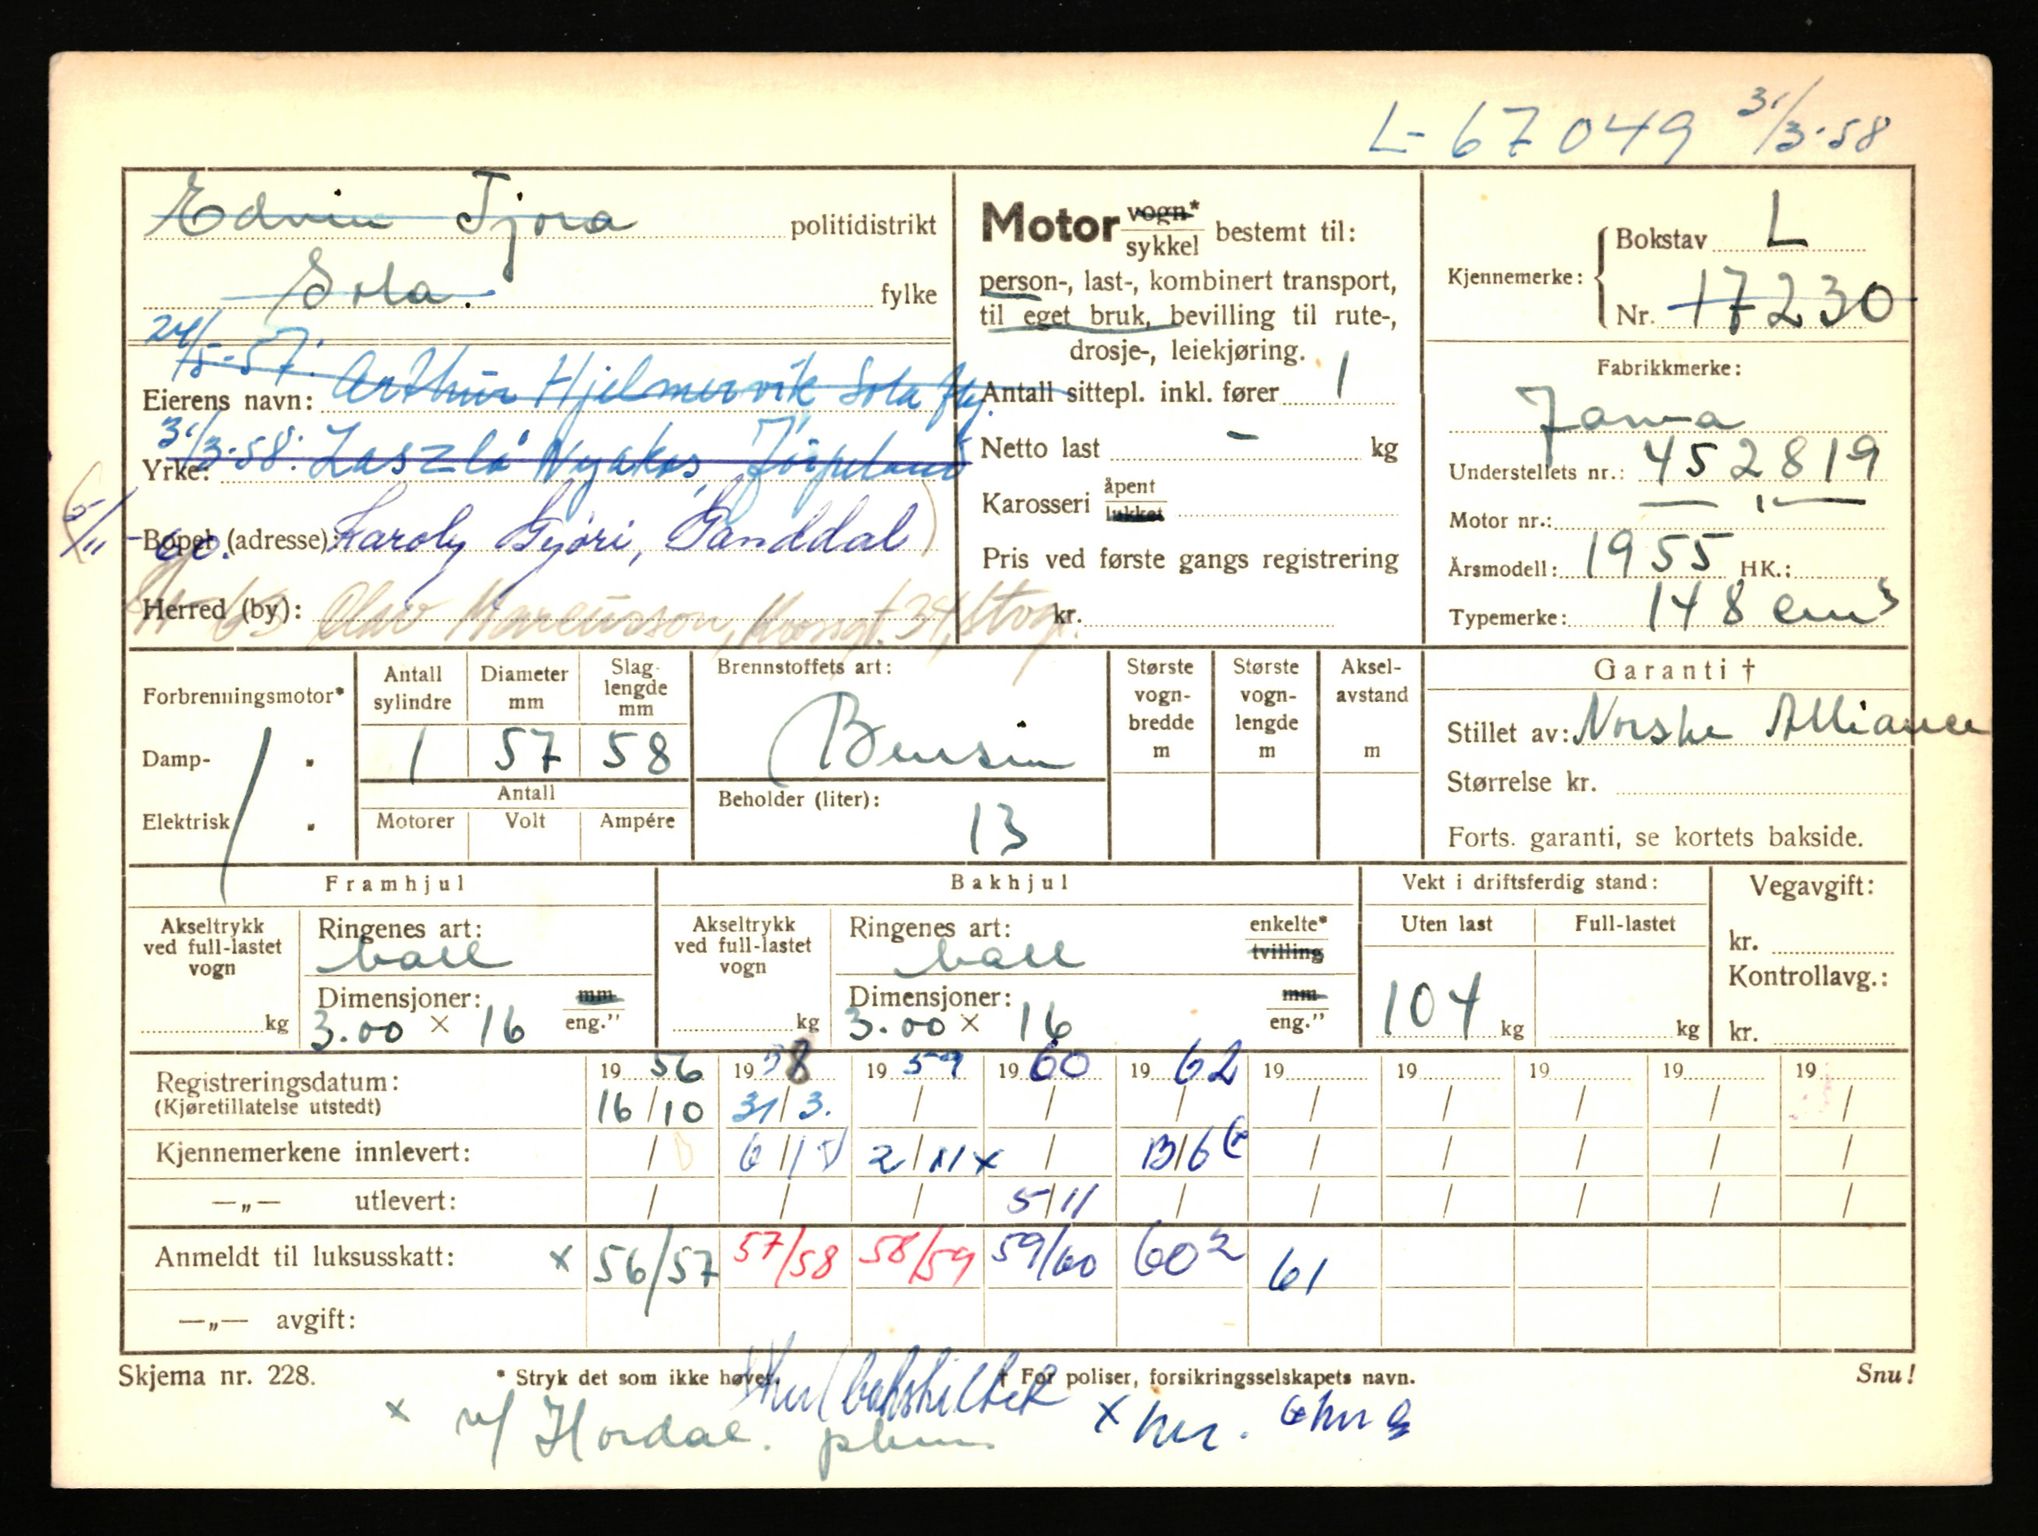 L-67049 31/3-58
Edvin Tjora politidistrikt
Sola. fylke
24/5-57.
Eierens navn: Arthur Hjelmervik Sola fly.
31/3-58: Laszlå Nyakas, Jörpeland
Yrke:
5/11-60.
Bopel (adresse): Karoly Györi, Ganddal
Herred (by): 63 Olav Marcusson, Kongsgt. 34, Stvgr.
Motor vogn*
sykkel bestemt til:
person-, last-, kombinert transport,
til eget bruk, bevilling til rute-,
drosje-, leiekjøring.
Antall sittepl. inkl. fører 1
Netto last - kg
Karosseri åpent
lukket
Pris ved første gangs registrering
kr.
Kjennemerke: Bokstav L
Nr. 17230
Fabrikkmerke:
Jawa
Understellets nr.: 452819
Motor nr.: — " —
Årsmodell: 1955 HK.:
Typemerke: 148 cm3
Forbrenningsmotor*
Damp- "
Elektrisk "
Antall sylindre Diameter mm Slaglengde mm
1 57 58
Antall
Motorer Volt Ampére
Brennstoffets art:
Bensin
Beholder (liter):
13
Største vogn-bredde m
Største vogn-lengde m
Aksel-avstand m
Garanti †
Stillet av: Norske Alliance
Størrelse kr.
Forts. garanti, se kortets bakside.
Framhjul
Akseltrykk ved full-lastet vogn
kg
Ringenes art:
ball
Dimensjoner: mm
3.00 × 16 eng."
Bakhjul
Akseltrykk ved full-lastet vogn
kg
Ringenes art: enkelte*
ball tvilling
Dimensjoner: mm
3.00 × 16 eng."
Vekt i driftsferdig stand:
Uten last Full-lastet
104 kg kg
Vegavgift:
kr.
Kontrollavg.:
kr.
19 56 19 58 19 59 19 60 19 62 19 19 19 19 19
Registreringsdatum:
(Kjøretillatelse utstedt) 16/10 31/3. / / / / / / / /
Kjennemerkene innlevert: / 6/ 2/11 x / 13/6 / / / / /
—„— utlevert: / / / 5/11 / / / / / /
Anmeldt til luksusskatt: x 56/57 57/58 58/59 59/60 60² 61
—„— avgift:
Skjema nr. 228. * Stryk det som ikke høver. † For poliser, forsikringsselskapets navn. Snu!
x v/ Hordal. x